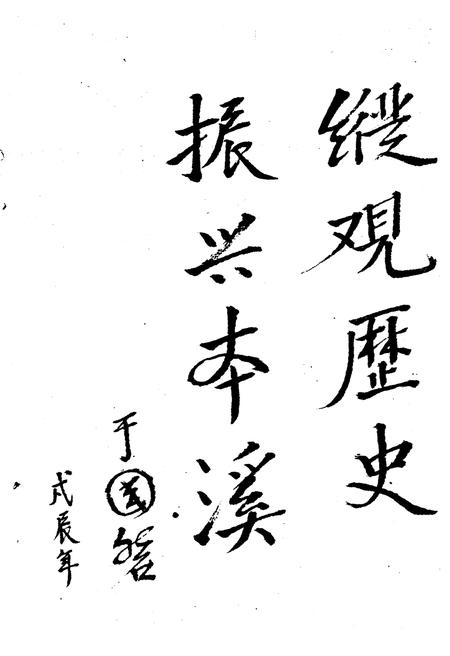 縱观歷史
振兴本溪
于國磐
戊辰年